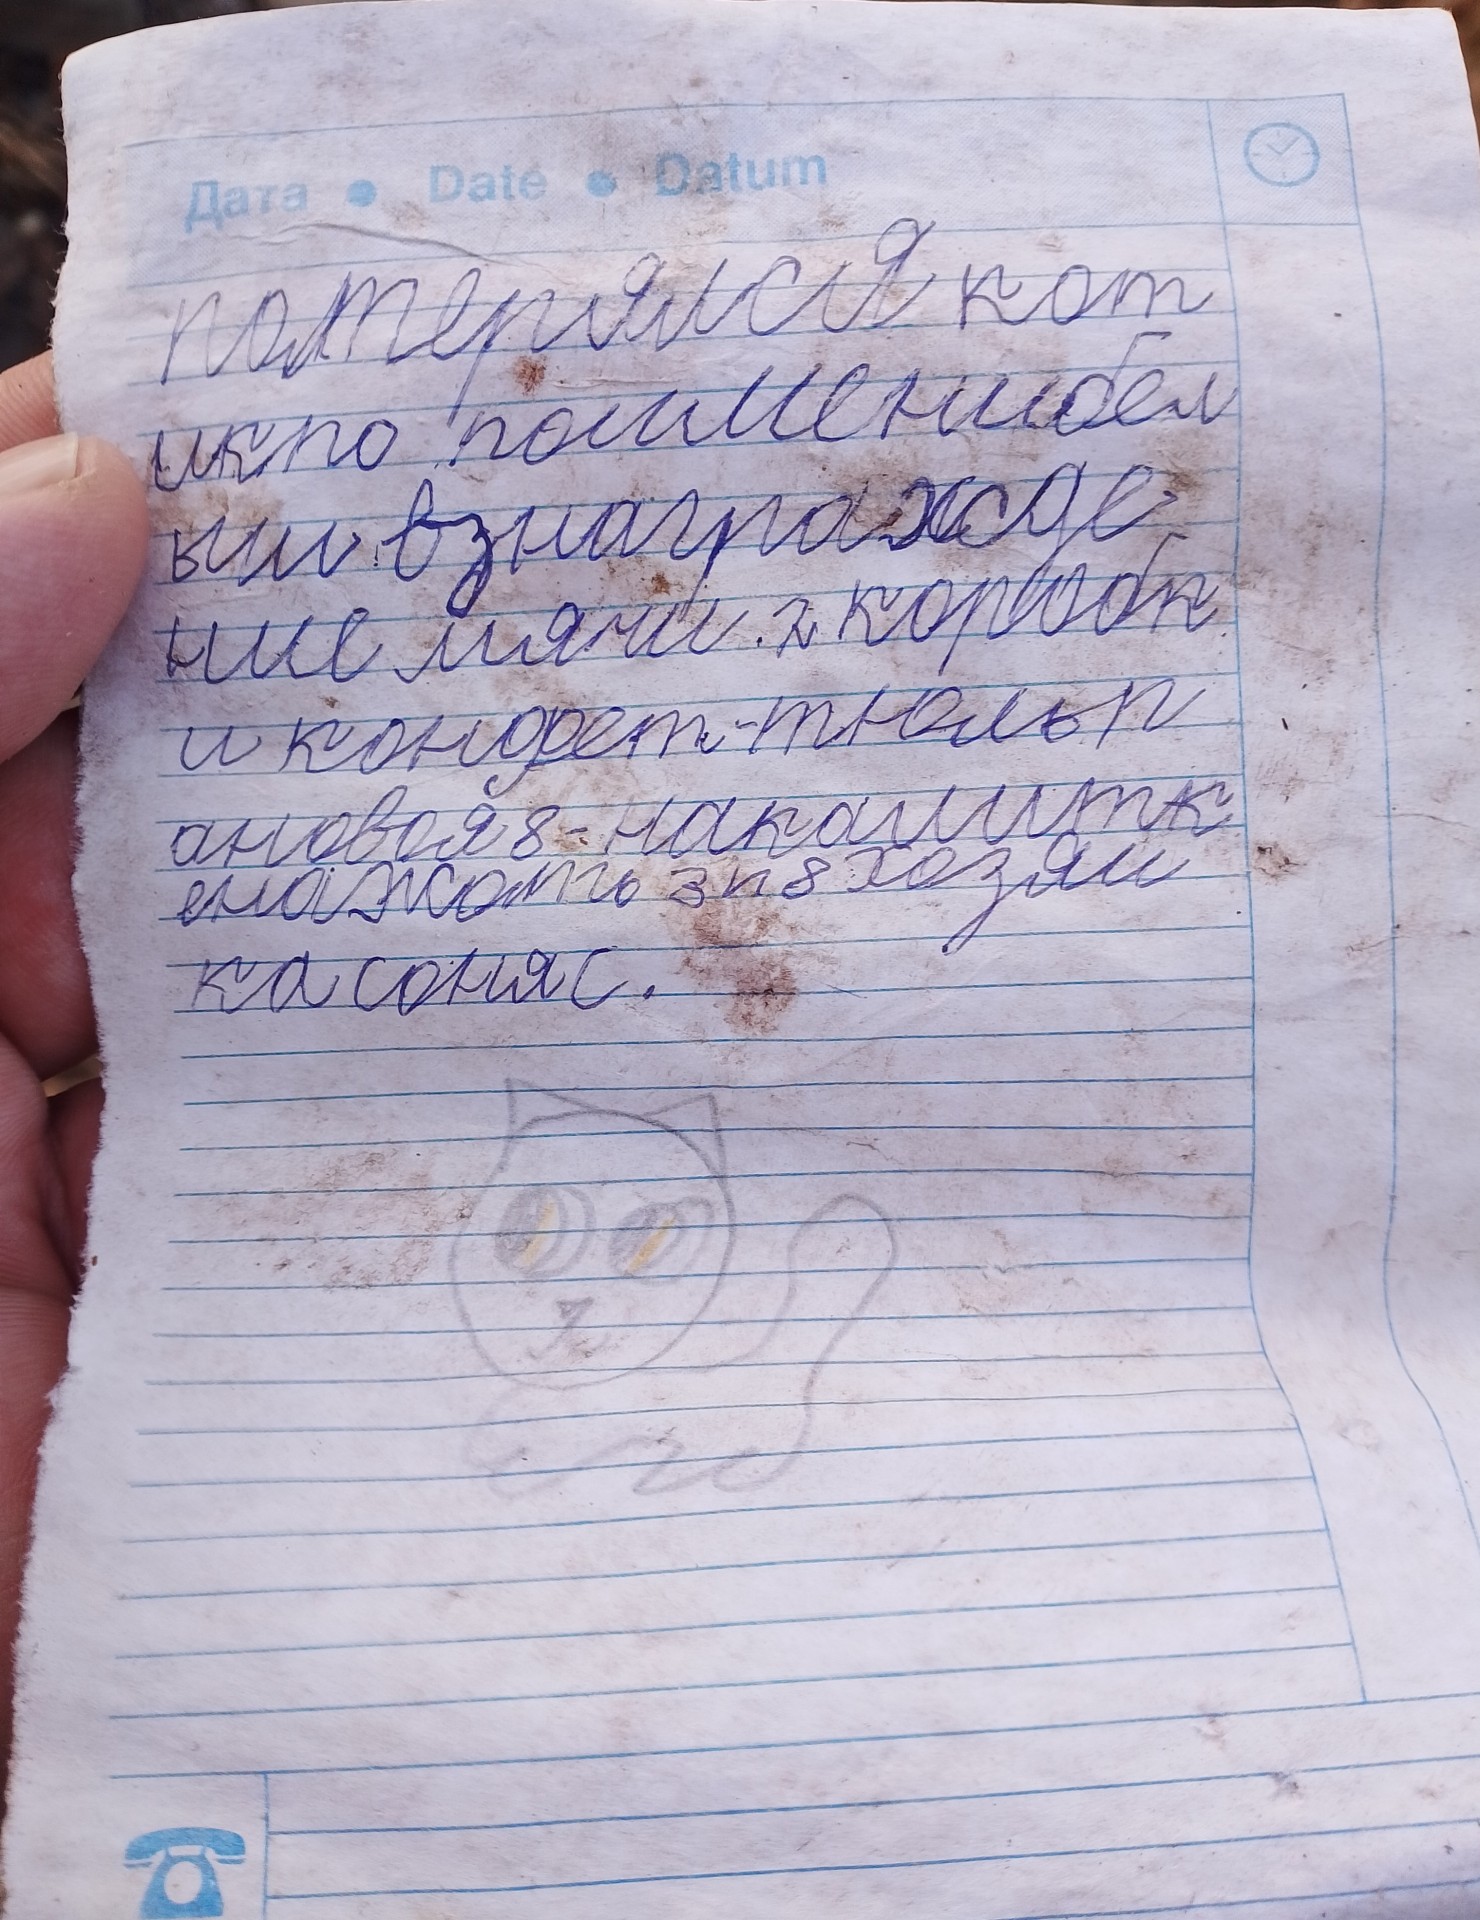 Дата • Date • Datum
потерялся кот
икпо поимени бел
ыи взнагражде
ние мячи. 2 коробк
и конфет-тюльп
ановая 8-накалитк
енажать 3 п 8 хозяи
ка соняс.